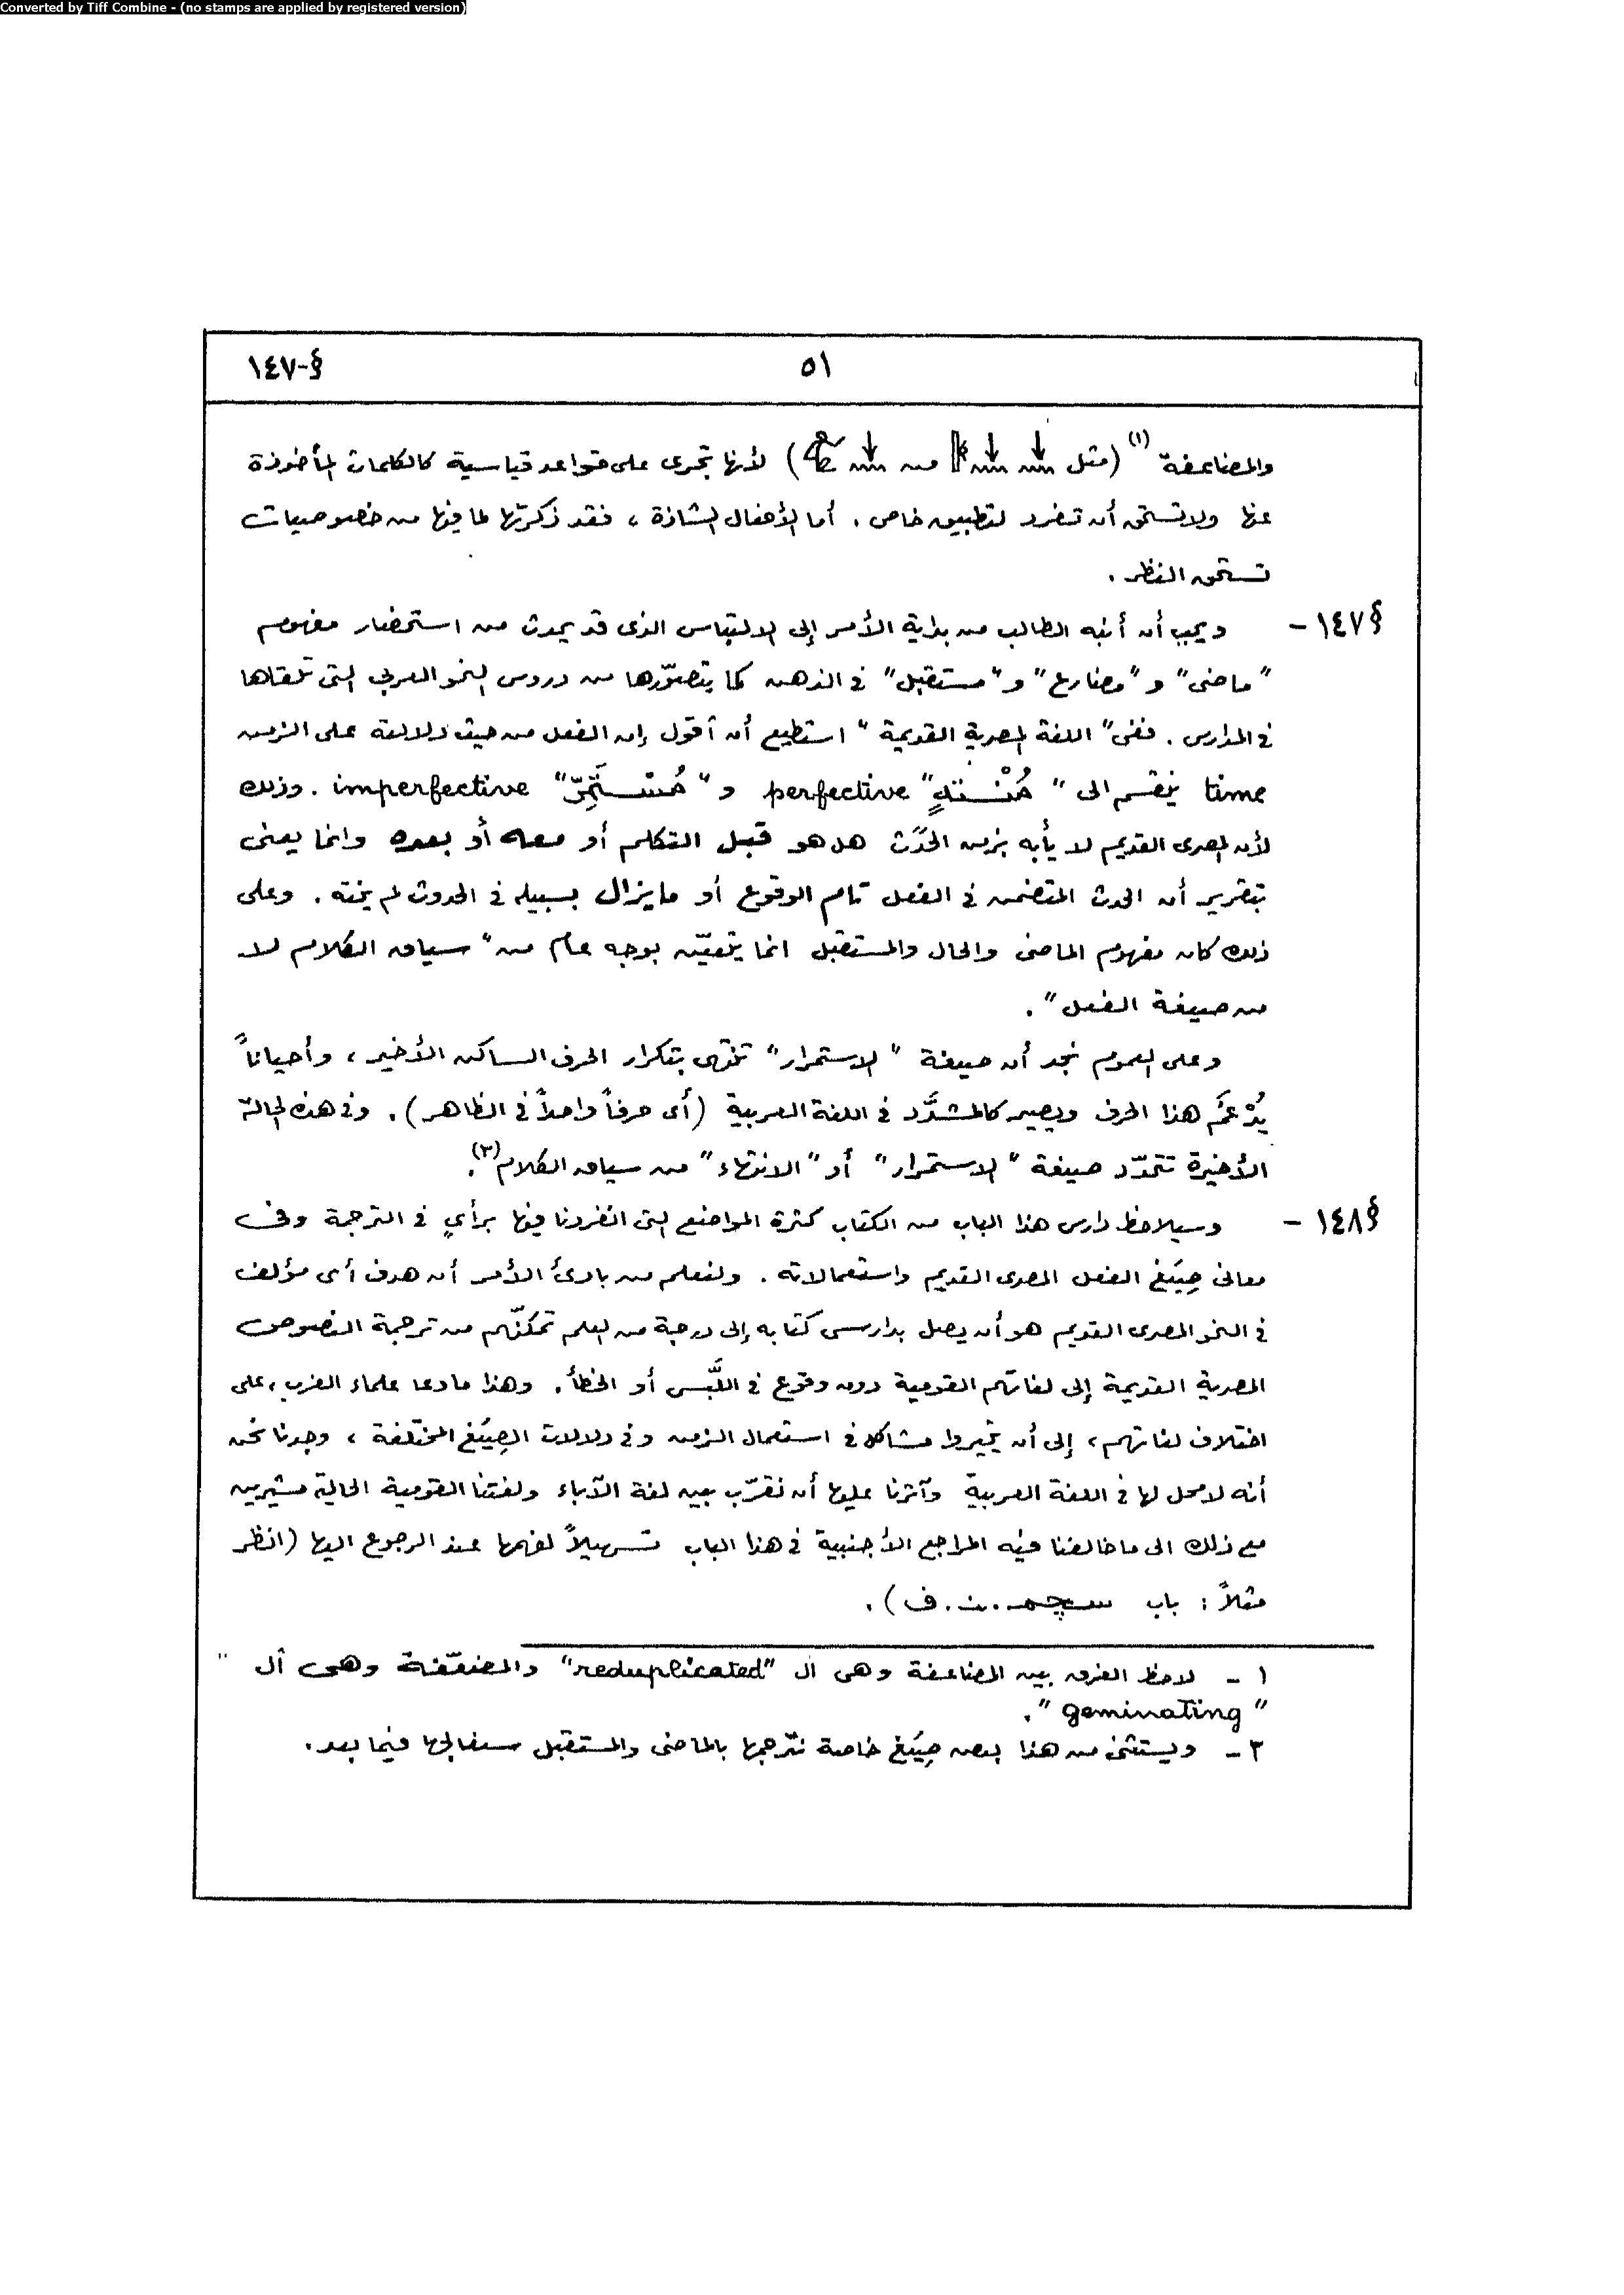 Converted by Tiff Combine - (no stamps are applied by registered version)
§-١٤٧
٥١
والمضاعفة (١) (مثل من ) لأنها تجرى على قواعد قياسية كالكلمات المأخوذة
عنها ولا تستحق أن تفرد لتطبيق خاص . أما الأفعال الشاذة ، فقد ذكرتها لما فيها من خصوصيات
تستحق النظر .
§١٤٧ - ويجب أن أنبه الطالب من بداية الأمر إلى الالتباس الذى قد يحدث من استحضار مفهوم
"ماضى" و "مضارع" و "مستقبل" فى الذهن كما يتصوّرها من دروس النحو العربى التى تلقاها
فى المدارس . ففى "اللغة المصرية القديمة" استطيع أن أقول إن الفعل من حيث دلالته على الزمن
time ينقسم الى "مُنْتَهٍ" perfective و "مُسْتَمِرّ" imperfective . وذلك
لأن المصرى القديم لا يأبه بزمن الحَدَث هل هو قبل التكلم أو معه أو بعده وانما يعنى
بتقرير أن الحدث المتضمن فى الفعل تام الوقوع أو ما يزال بسبيله فى الحدوث لم ينته . وعلى
ذلك كان مفهوم الماضى والحال والمستقبل انما يتعيّن بوجه عام من "سياق الكلام لا
من صيغة الفعل" .
وعلى العموم نجد أن صيغة "الاستمرار" تختص بتكرار الحرف الساكن الأخير ، وأحياناً
يُدْغَم هذا الحرف ويصير كالمشدَّد فى اللغة العربية (أى حرفاً واحداً فى الظاهر) . وفى هذه الحالة
الأخيرة تتحدّد صيغة "الاستمرار" أو "الانتهاء" من سياق الكلام(٢) .
§١٤٨ - وسيلاحظ دارس هذا الباب من الكتاب كثرة المواضع التى انفردنا فيها برأىٍ فى الترجمة وفى
معانى صِيَغ الفعل المصرى القديم واستعمالاته . ولنعلم من بادئ الأمر أن هدف أى مؤلف
فى النحو المصرى القديم هو أن يصل بدارسى كتابه إلى درجة من العلم تمكنّهم من ترجمة النصوص
المصرية القديمة إلى لغاتهم القومية دون وقوع فى اللَّبس أو الخطأ . وهذا ما دعا علماء الغرب ، على
اختلاف لغاتهم ، إلى أن يثيروا مشاكل فى استعمال الزمن وفى دلالات الصِيَغ المختلفة ، وجدنا نحن
أنه لا محل لها فى اللغة العربية وآثرنا عليها أن نقرّب بين لغة الآباء ولغتنا القومية الحالية مشيرين
مع ذلك الى ما خالفنا فيه المراجع الأجنبية فى هذا الباب تسهيلاً لفهمها عند الرجوع اليها (انظر
مثلاً : باب سچم.ن.ف) .
١ - لاحظ الفرق بين المضاعفة وهى ال "reduplicated" والمضعّفة وهى ال
"geminating" .
٢ - ويستثنى من هذا بعض صِيَغ خاصة نترجمها بالماضى والمستقبل سنعالجها فيما بعد .